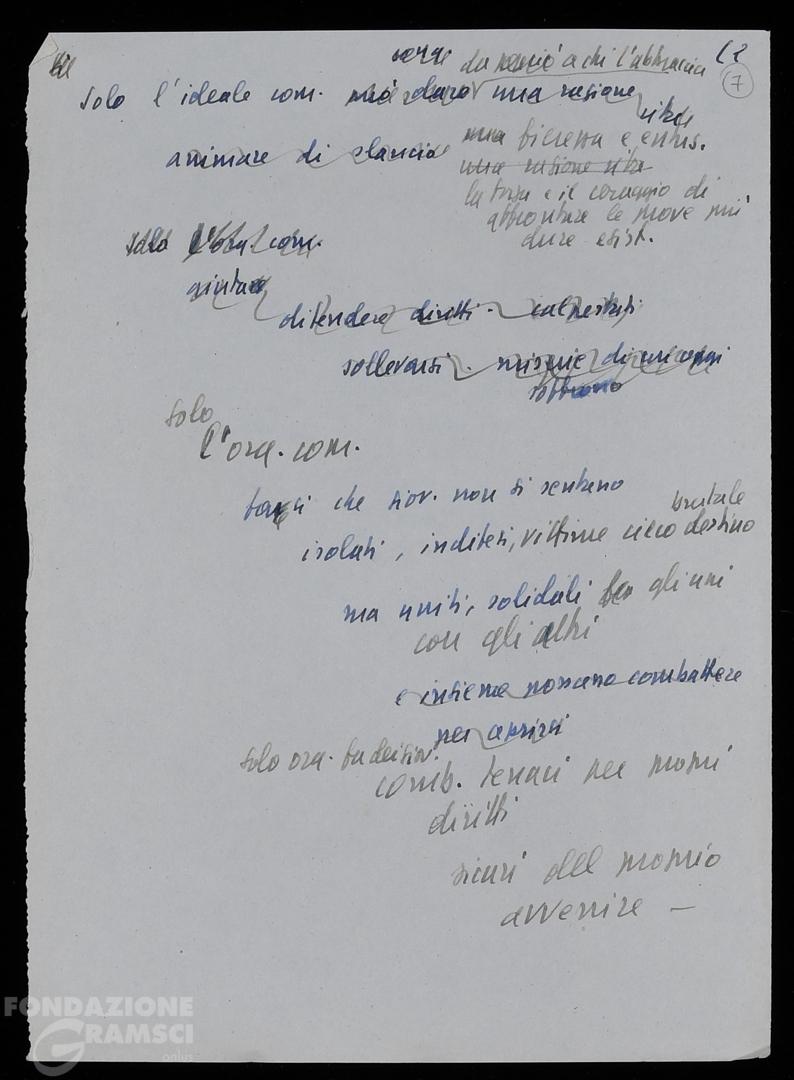 12
7
da a chi l'abbraccia
Solo l'ideale com. può dare una ragione vita
animare di slancio
una fierezza e entus.
una ragione vita
la forza e il coraggio di
affrontare le prove più
dure esist.
Solo l'org. com.
aiutare
difendere diritti - calpestati
sollevarsi - miserie di cui oggi
soffrono
Solo
l'org. com.
far sì che giov. non si sentano
isolati, indifesi, vittime cieco brutale destino
ma uniti, solidali gli uni
con gli altri
e insieme possano combattere
per aprirsi
Solo org. fa dei giov.
comb. tenaci per propri
diritti
sicuri del proprio
avvenire -
FONDAZIONE
GRAMSCI
onlus